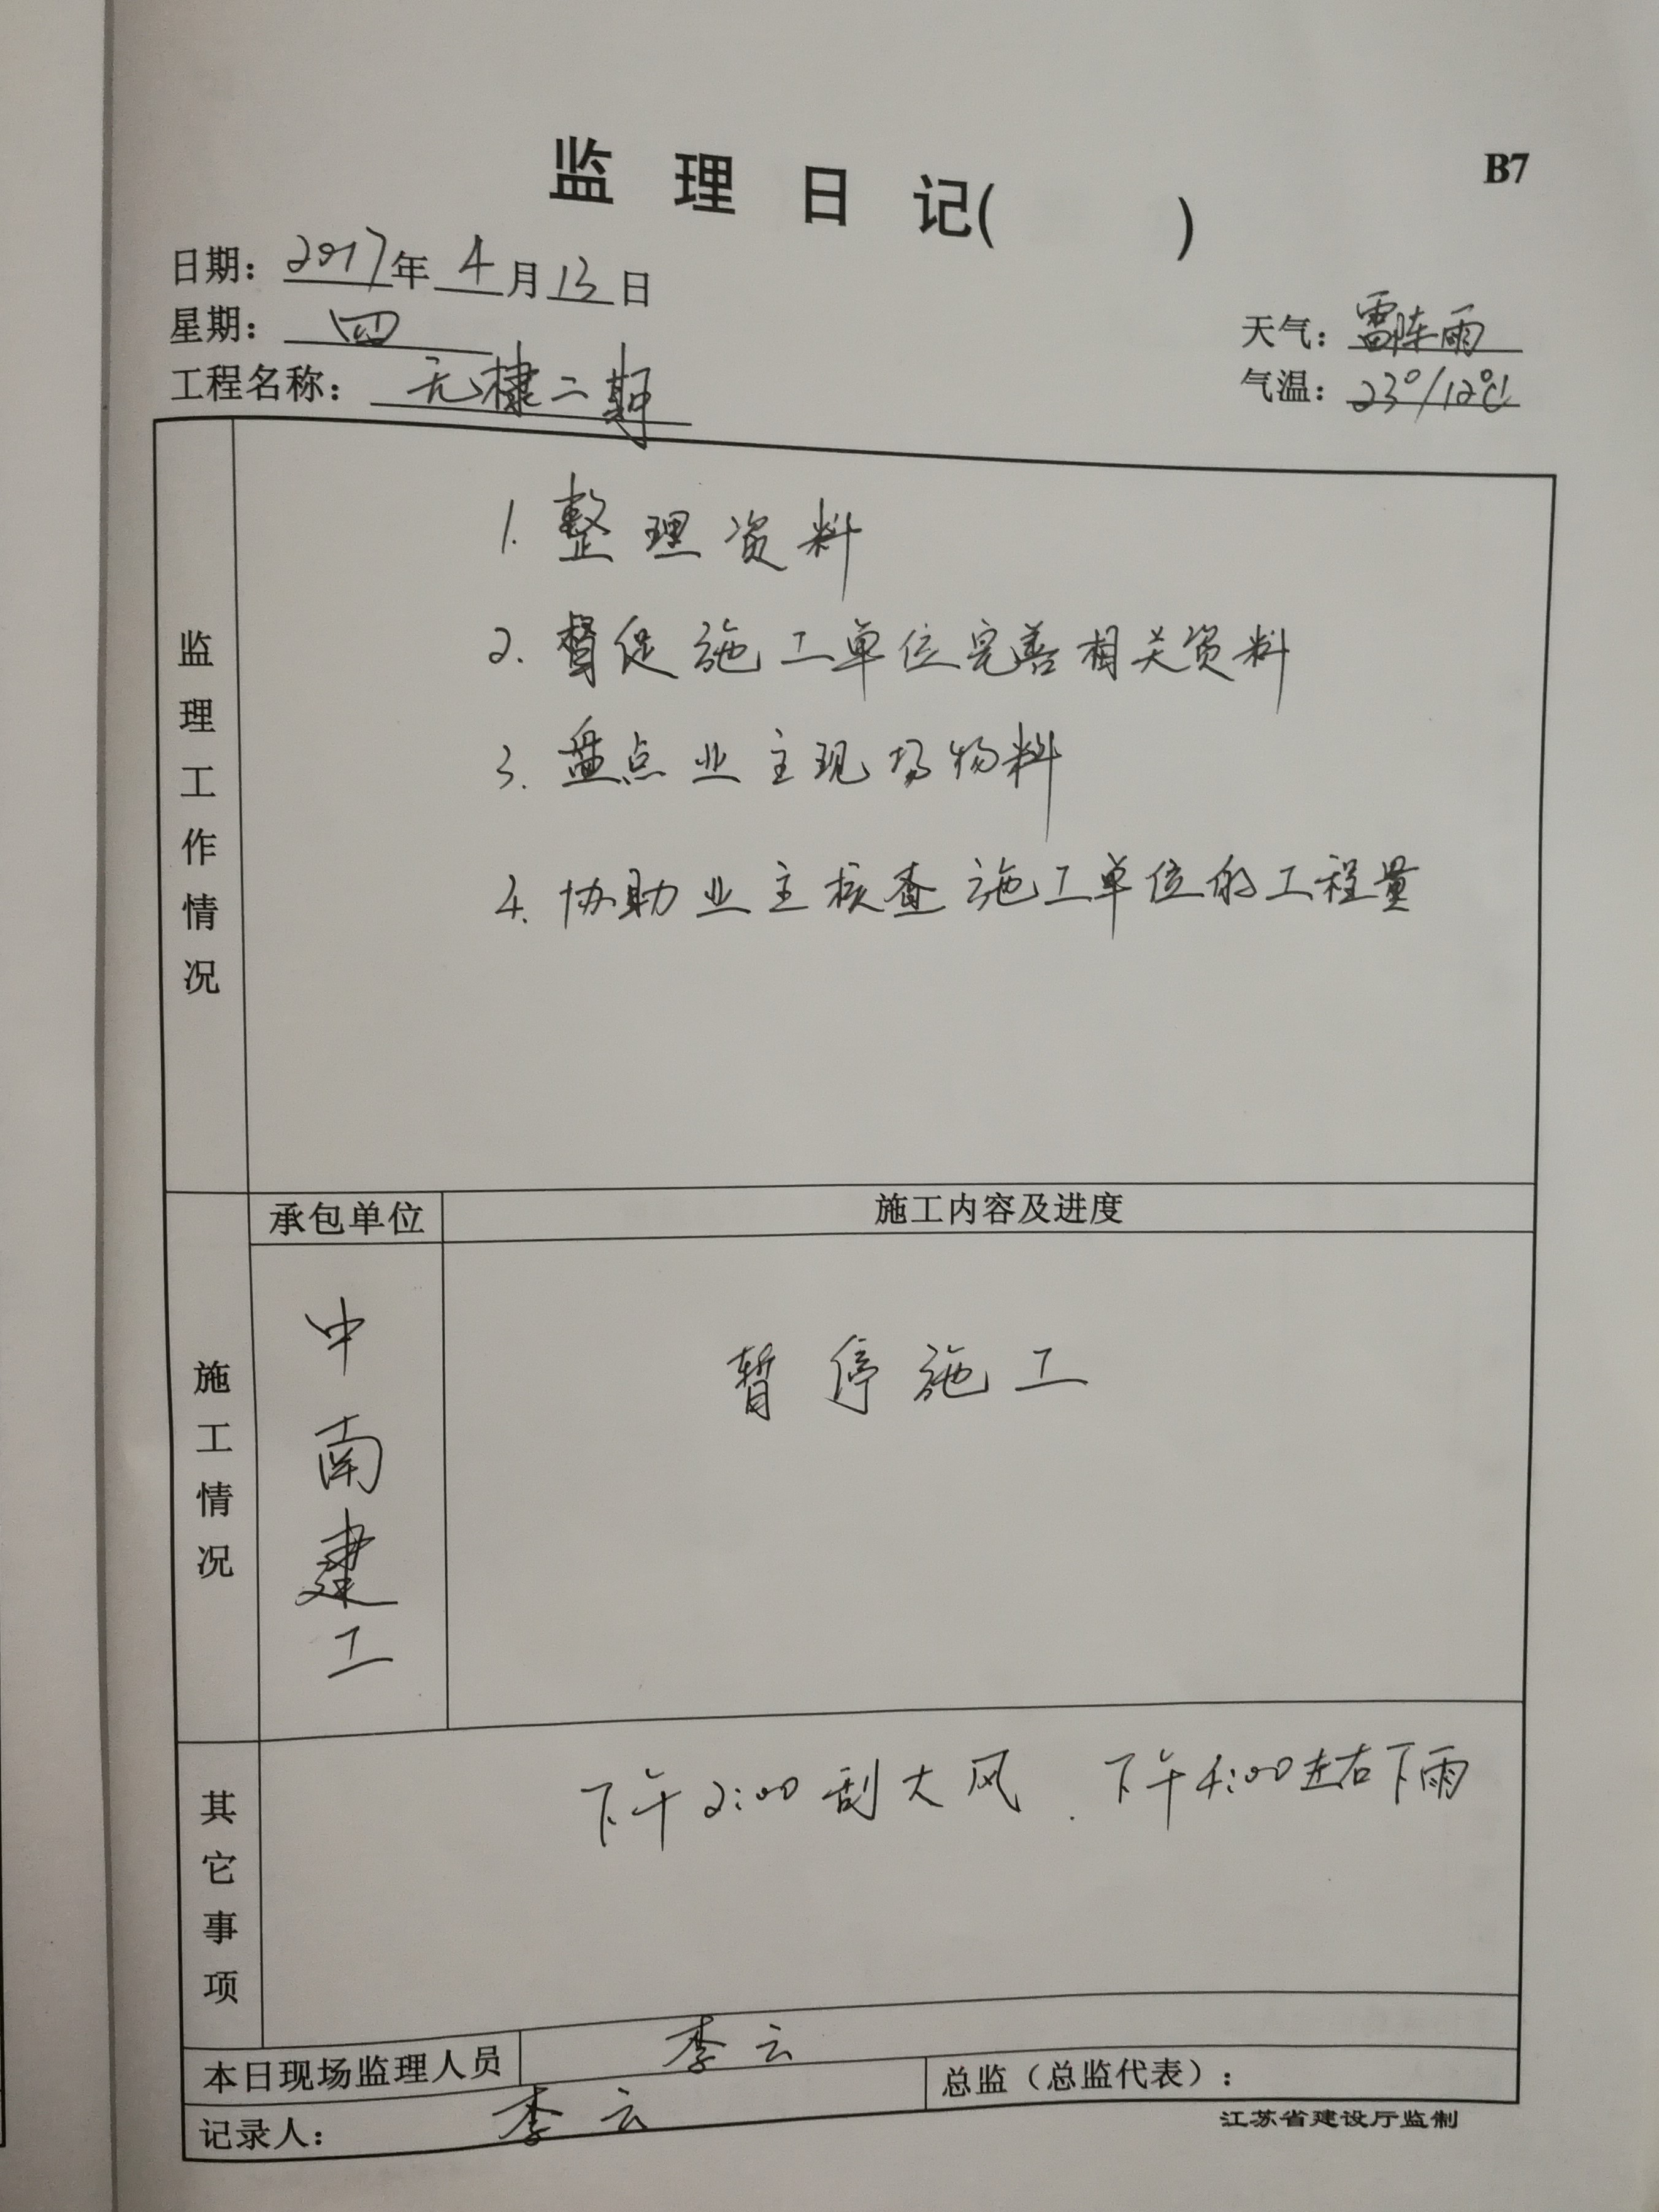 B7
监理日记( )
日期：2017年4月13日
星期：四
天气：雷阵雨
工程名称：无棣二期
气温：23°/12℃
监理工作情况
1. 整理资料
2. 督促施工单位完善相关资料
3. 盘点业主现场物料
4. 协助业主核查施工单位的工程量
承包单位
施工内容及进度
施工情况
中南建工
暂停施工
其它事项
下午2:00刮大风．下午4:00左右下雨
本日现场监理人员 李云
总监（总监代表）：
记录人：李云
江苏省建设厅监制